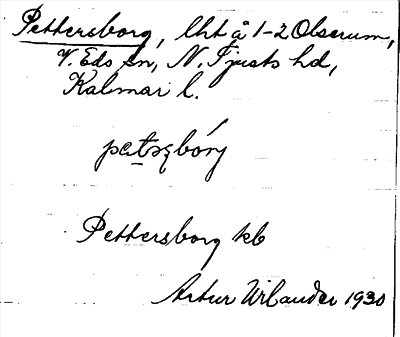 Pettersborg, lht å 1-2 Olserum,
V. Eds sn, N. Tjusts hd,
Kalmar l.
pætəʂbórj
Pettersborg kb
Artur Urlander 1930